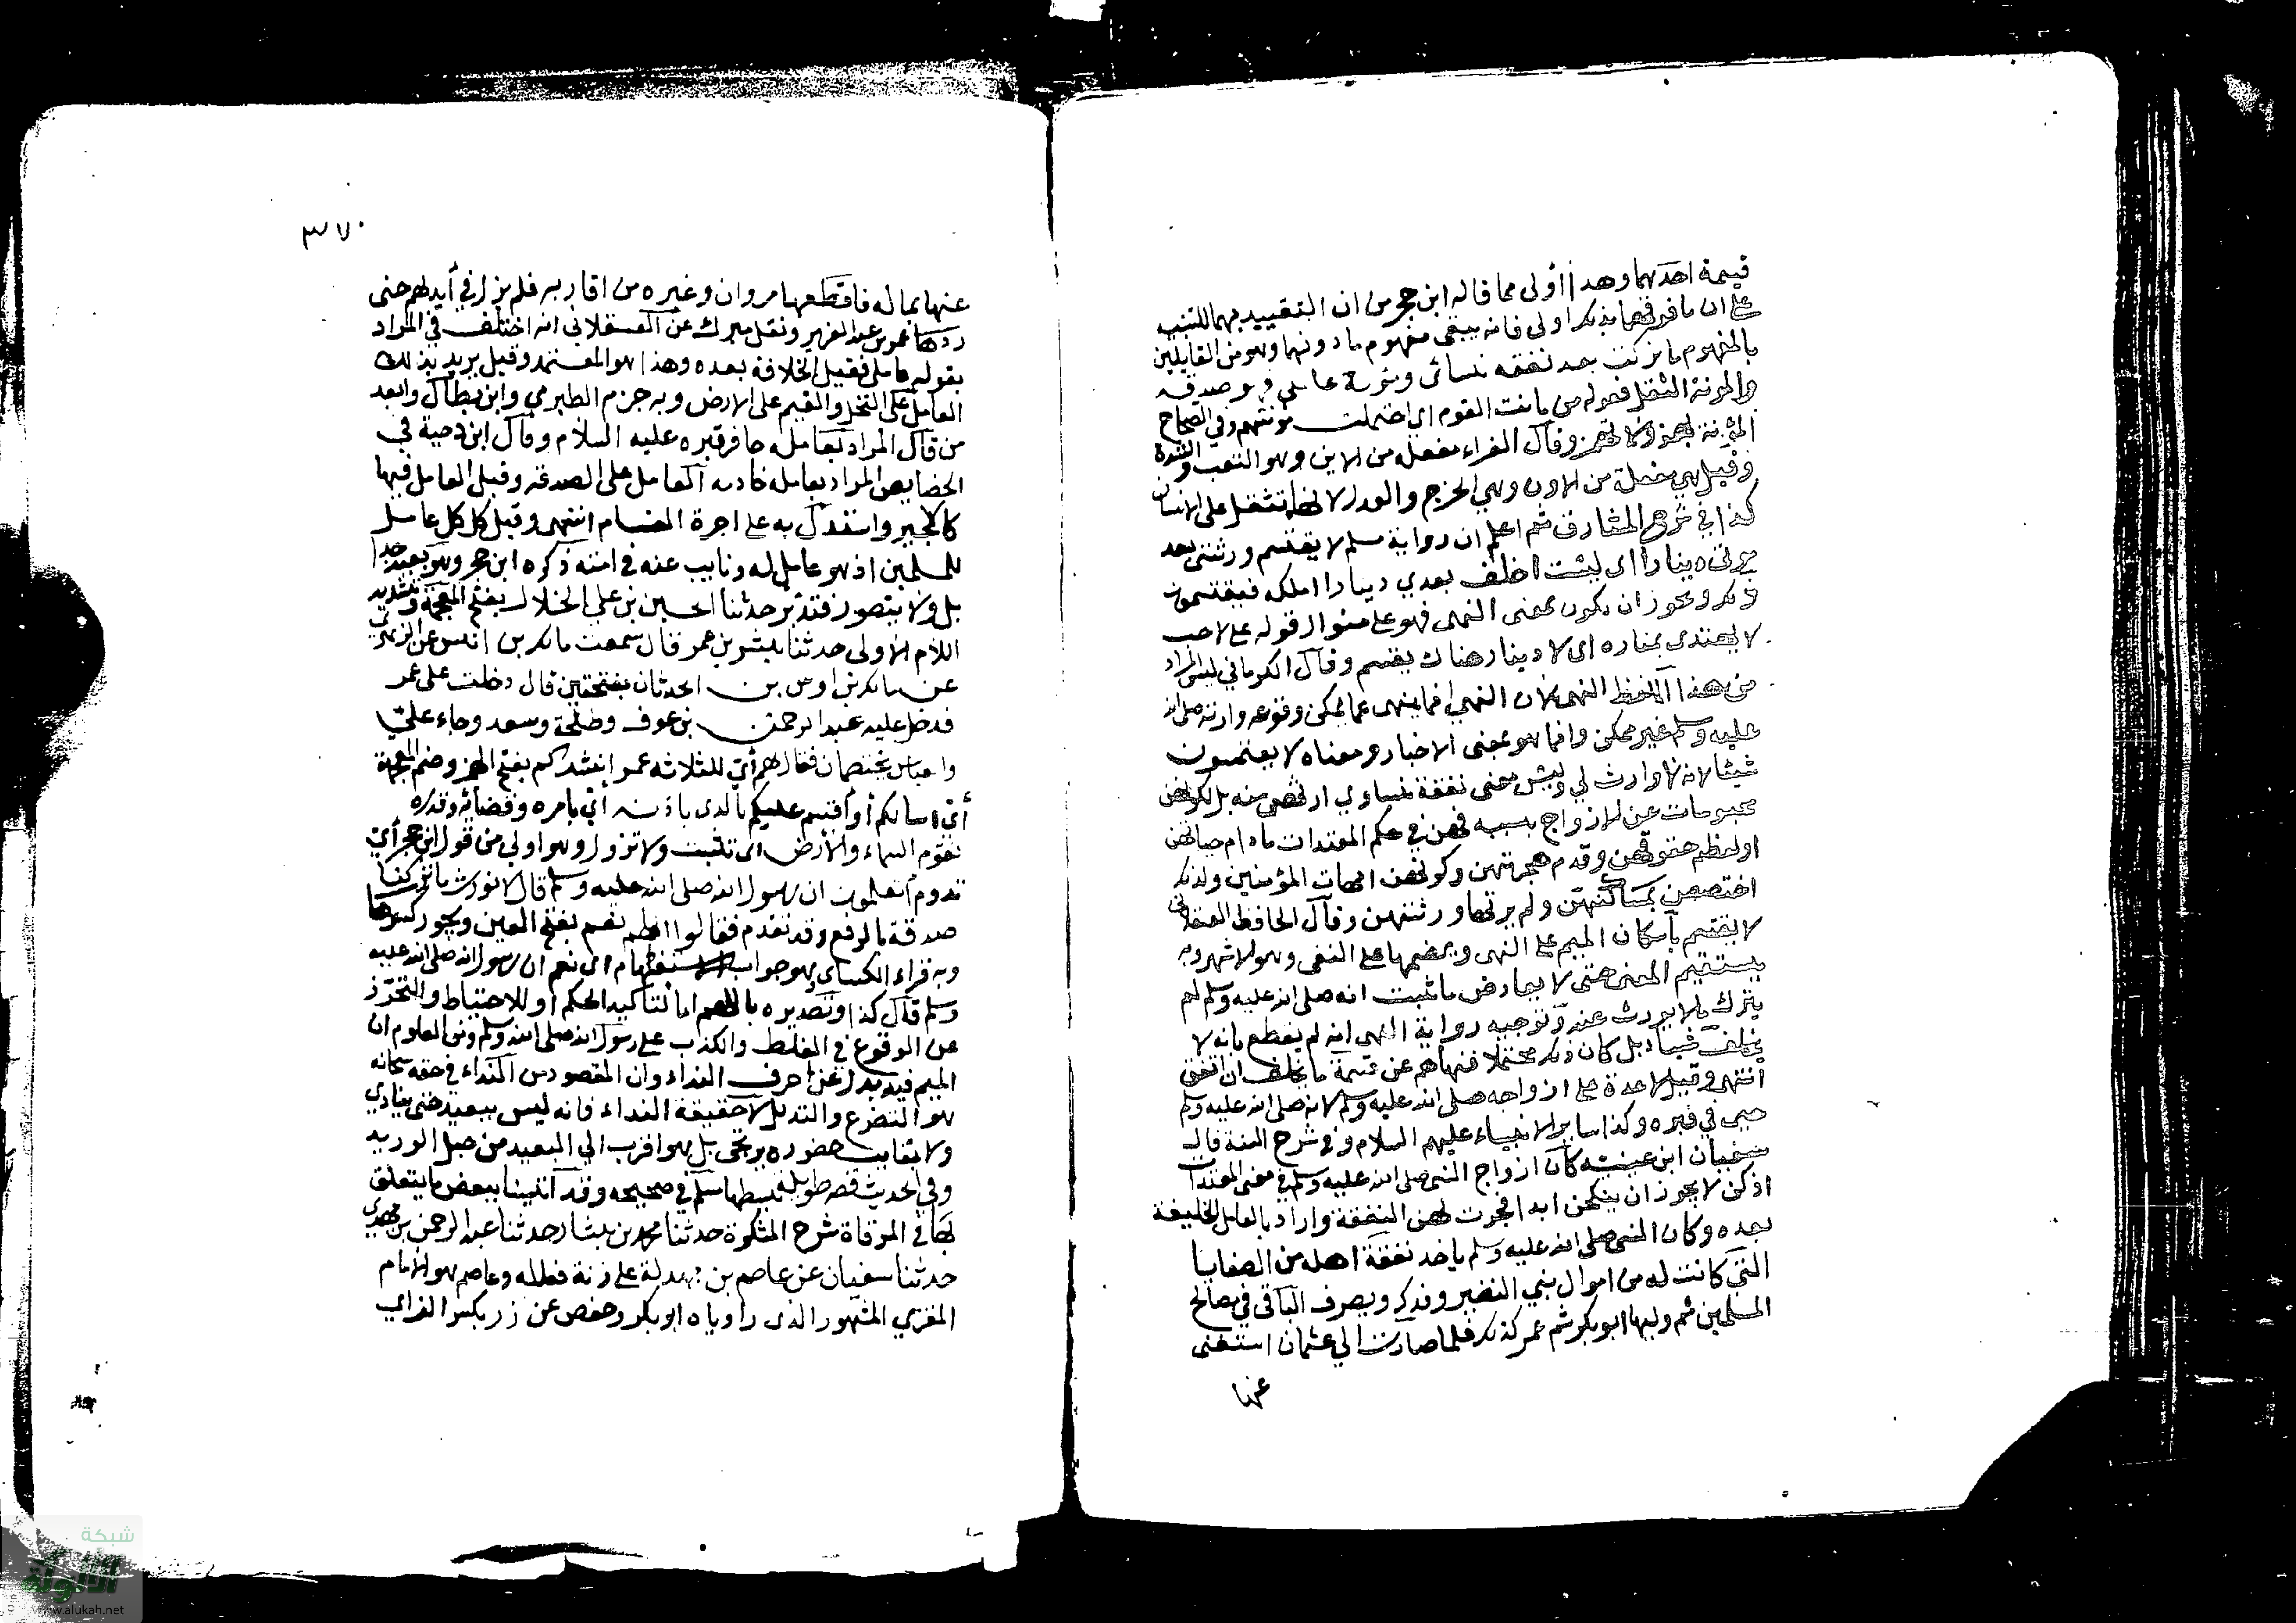 قيمة احدهما وهذا أولى مما قاله ابن حجر من ان التقييد بهما للتنبيه
على ان ما فوقهما بذلك اولى فانه يبقى مفهوم ما دونهما وهو من القايلين
بالمفهوم ما تركت بعد نفقة نسائى ومؤنة عاملى فهو صدقه
والمونة الثقل فعوله من مانت القوم اى احتملت مؤنتهم وفي الصحاح
المؤنة تهمز ولا تهمز وقال الفراء مفعلة من الاين وهو التعب والشدة
وقيل هي مفعلة من الاون وهي الخرج والعدل لانها تثقل على الانسان
كذا في شرح المشارق ثم اعلم ان رواية مسلم لا يقتسم ورثتى بعد
موتى دينارا اى ليست اخلف بعدي دينارا املكه فيقتسمون
ذلك ويجوز ان يكون بمعنى النهى فهو على منوال قوله على لاحب
لا يهتدى بمناره اى لا دينار هناك يقسم وقال الكرماني ليس المراد
من هذا اللفظ النهى لان النهى انما ينهى عما يمكن وقوعه وارثه صلى الله
عليه وسلم غير ممكن وانما هو بمعنى الاخبار ومعناه لا يقتسمون
شيئا لانه لا وارث لي وليس معنى نفقة نساوي ارثهن منه بل لكونهن
محبوسات عن الازواج بسببه فهن في حكم المعتدات ما دام حياتهن
او لعظم حقوقهن وقدم هجرتهن وكونهن امهات المؤمنين ولذلك
اختصصن بمساكنهن ولم يرثها ورثتهن وقال الحافظ العسقلاني
لا يقتسم باسكان الميم على النهى وبضمها على النفى وهو الاشهر وبه
يستقيم المعنى حتى لا يعارض ما ثبت انه صلى الله عليه وسلم لم
يترك مالا يورث عنه وتوجيه رواية النهى انه لم يقطع بانه لا
يخلف شيأ بل كان ذلك محتملا فنهاهم عن قسمة ما يخلف ان اتفق
انتهى وقيل لا عدة على ازواجه صلى الله عليه وسلم لانه صلى الله عليه وسلم
حى في قبره وكذا ساير الانبياء عليهم السلام وفي شرح السنة قال
سفيان ابن عيينة كان ازواج النبى صلى الله عليه وسلم في معنى المعتدات
اذ كن لا يجوز ان ينكحن ابدا فجرت لهن النفقة واراد بالعامل الخليفة
بعده وكان النبى صلى الله عليه وسلم ياخذ نفقة اهله من الصفايا
التى كانت له من اموال بني النضير وفدك ويصرف الباقى في مصالح
المسلمين ثم وليها ابو بكر ثم عمر كذلك فلما صارت الى عثمان استغنى
عنها
٣٧٠
عنها بماله فاقطعها مروان وغيره من اقاربه فلم يزل في أيديهم حتى
ردها عمر بن عبد العزيز ونقل ميرك عن العسقلاني انه اختلف في المراد
بقوله عاملى فقيل الخلافة بعده وهذا هو المعتمد وقيل يريد بذلك
العامل على النخل والقيم على الارض وبه جزم الطبري وابن بطال وابعد
من قال المراد بعامله حافر قبره عليه السلام وقال ابن دحية في
الخصايص المراد بعامله خادمه العامل على الصدقة وقيل العامل فيها
كالاجير واستدل به على اجرة القسام انتهى وقيل كل كل عامل
للمسلمين اذ هو عامل له ونايب عنه في امته ذكره ابن حجر وهو بعيد جدا
بل ولا يتصور فتدبر حدثنا الحسين بن على الخلال بفتح المعجمة وتشديد
اللام الاولى حدثنا بشر بن عمر قال سمعت مالك بن انس عن الزهري
عن مالك بن اوس بن الحدثان بفتحتين قال دخلت على عمر
فدخل عليه عبد الرحمن بن عوف وطلحة وسعد وجاء على
والعباس يختصمان فقال لهم أي للثلاثه عمر انشدكم بفتح الهمز وضم المعجمة
أي اسالكم أو اقسم عليكم بالذى باذنه أي بامره وقضائه وقدره
تقوم السماء والارض اى تثبت ولا تزول وهو اولى من قول ابن حجر أي
تدوم أتعلمون ان رسول الله صلى الله عليه وسلم قال لا نورث ما تركنا
صدقة بالرفع وقد تقدم فقالوا اللهم نعم بفتح العين ويجوز كسرها
وبه قراء الكساى وهو جواب الاستفهام اى نعم ان رسول الله صلى الله عليه
وسلم قال كذا وتصديره باللهم اما لتاكيد الحكم او للاحتياط والتحرز
عن الوقوع في الغلط والكذب على رسول الله صلى الله وسلم ومن المعلوم ان
الميم فيه بدل عن حرف النداء وان المقصود من النداء في حقه سبحانه
هو التضرع والتذلل لا حقيقة النداء فانه ليس ببعيد حتى ينادي
ولا بغايب حضوره يرتجى بل هو اقرب الى البعيد من حبل الوريد
وفي الحديث قصه طويلة بسطها مسلم في صحيحه وقد اتينا ببعض ما يتعلق
بها في المرقاة شرح المشكوة حدثنا محمد بن بشار حدثنا عبد الرحمن بن مهدي
حدثنا سفيان عن عاصم بن بهدلة على زنة فعلله وعاصم هو الامام
المقري المشهور الذى راوياه ابو بكر وحفص عن زر بكسر الزاي
شبكة
الألوكة
www.alukah.net